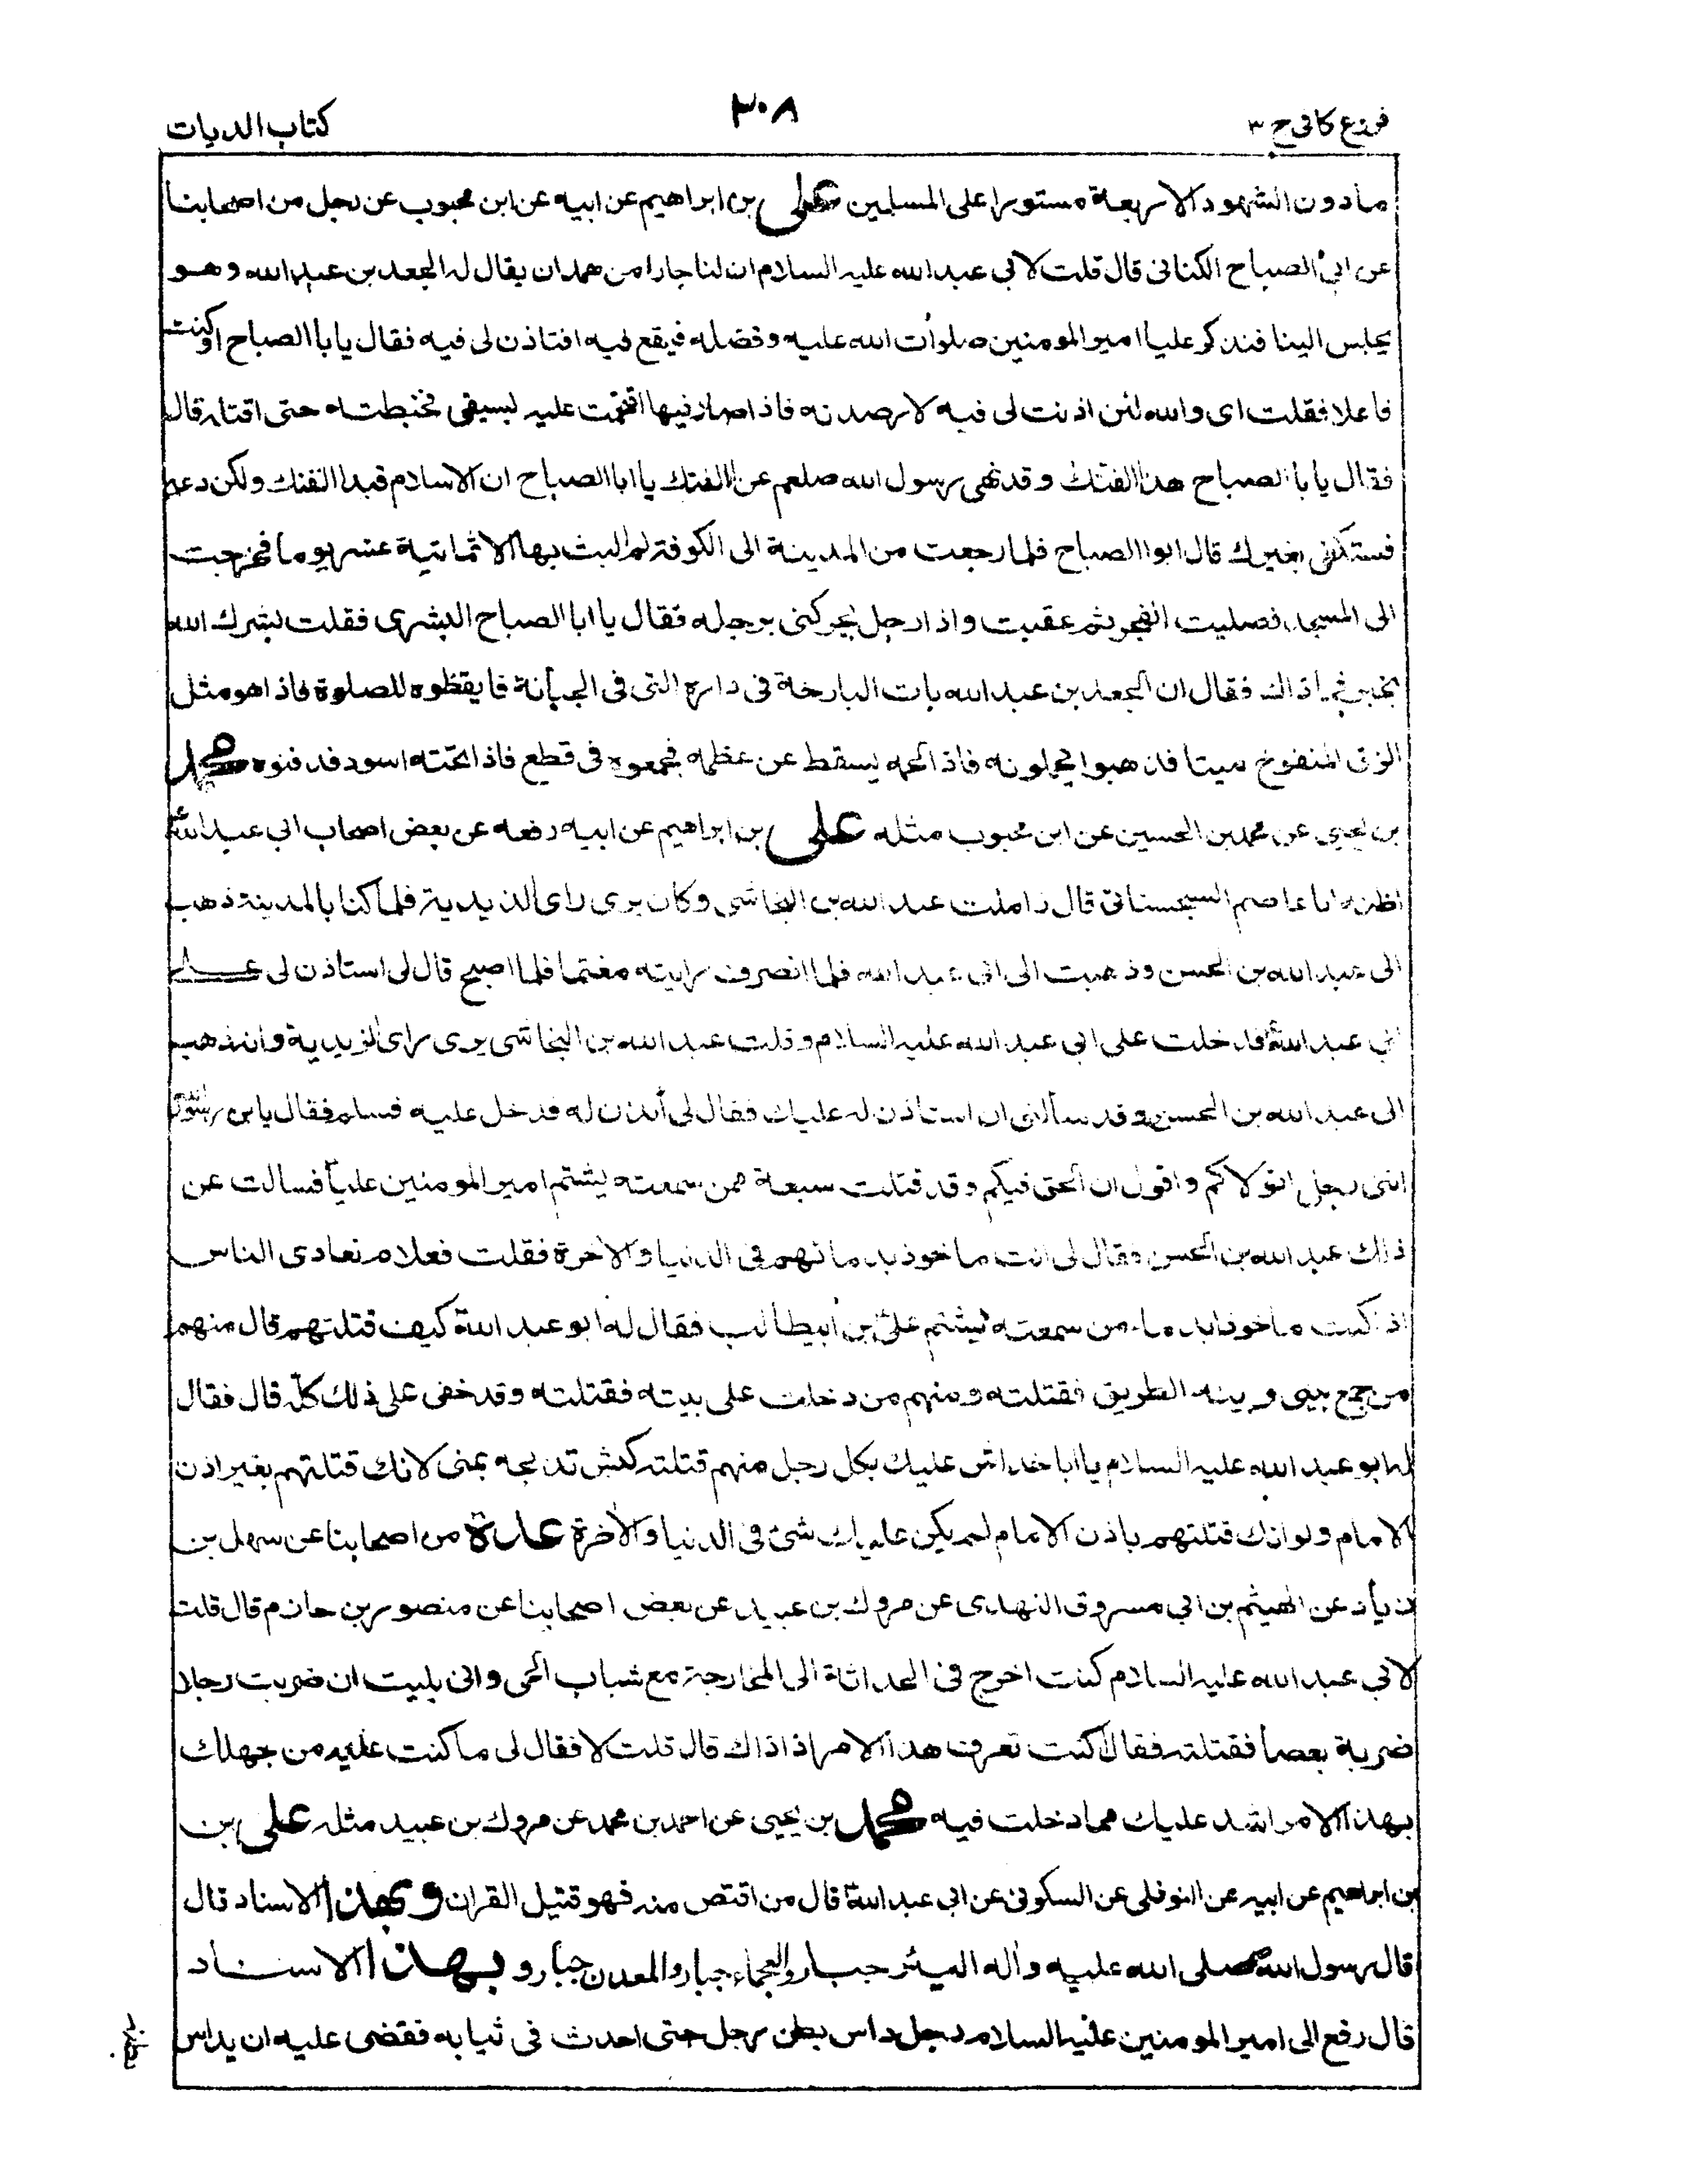 فروع كافى ج ٣
٣٠٨
كتاب الديات
مادون الشهود الاربعة مستورا على المسلمين على بن ابراهيم عن ابيه عن ابن محبوب عن رجل من اصحابنا
عن ابى الصباح الكنانى قال قلت لابى عبد الله عليه السلام ان لنا جارا من همدان يقال له الجعد بن عبد الله وهو
يجلس الينا فنذكر عليا امير المومنين صلوات الله عليه وفضله فيقع فيه افتاذن لى فيه فقال يابا الصباح اوكنت
فاعلا فقلت اى والله لئن اذنت لى فيه لارصدنه فاذا صار فيها اقتحمت عليه بسيفى فخبطته حتى اقتله قال
فقال يابا الصباح هذا الفتك وقد نهى رسول الله صلعم عن الفتك يا ابا الصباح ان الاسلام قيد الفتك ولكن دعه
فستكفى بغيرك قال ابوا الصباح فلما رجعت من المدينة الى الكوفة لم البث بها الا ثمانية عشر يوما فخرجت
الى المسجد فصليت الفجر ثم عقبت واذا رجل يحركنى برجله فقال يا ابا الصباح البشرى فقلت بشرك الله
بخير فما ذاك فقال ان الجعد بن عبد الله بات البارحة فى داره التى فى الجبانة فايقظوه للصلوة فاذا هو مثل
الزق المنفوخ ميتا فذهبوا يحملونه فاذا لحمه يسقط عن عظمه فجمعوه فى قطع فاذا تحته اسود فدفنوه محمد
بن يحيى عن محمد بن الحسين عن ابن محبوب مثله على بن ابراهيم عن ابيه رفعه عن بعض اصحاب ابى عبد الله
اظنه ابا عاصم السجستانى قال زاملت عبد الله بن النجاشى وكان يرى راى الزيدية فلما كنا بالمدينة ذهب
الى عبد الله بن الحسن وذهبت الى ابى عبد الله فلما انصرف رايته مغتما فلما اصبح قال لى استاذن لى على
ابى عبد الله فدخلت على ابى عبد الله عليه السلام وقلت عبد الله بن النجاشى يرى راى الزيدية وانه ذهب
الى عبد الله بن الحسن وقد سألنى ان استاذن له عليك فقال لى أئذن له فدخل عليه فسلم فقال يابن رسول الله
اننى رجل اتولاكم واقول ان الحق فيكم وقد قتلت سبعة ممن سمعته يشتم امير المومنين عليا فسالت عن
ذلك عبد الله بن الحسن فقال لى انت ماخوذ بدمائهم فى الدنيا والاخرة فقلت فعلام نعادى الناس
اذا كنت ماخوذا بدماء من سمعته يشتم على بن أبيطالب فقال له ابو عبد الله كيف قتلتهم قال منهم
من جمع بينى وبينه الطريق فقتلته ومنهم من دخلت على بيته فقتلته وقد خفى على ذلك كله قال فقال
له ابو عبد الله عليه السلام يا ابا خداش عليك بكل رجل منهم قتلته كبش تذبحه بمنى لانك قتلتهم بغير اذن
الامام ولو انك قتلتهم باذن الامام لم يكن عليك شئ فى الدنيا والاخرة عدة من اصحابنا عن سهل بن
زياد عن الهيثم بن ابى مسروق النهدى عن مروك بن عبيد عن بعض اصحابنا عن منصور بن حازم قال قلت
لابى عبد الله عليه السلام كنت اخرج فى الحداثة الى المخارجة مع شباب الحى وانى بليت ان ضربت رجلا
ضربة بعصا فقتلته فقال أكنت تعرف هذا الامر اذ ذاك قال قلت لا فقال لى ما كنت عليه من جهلك
بهذا الامر اشد عليك مما دخلت فيه محمد بن يحيى عن احمد بن محمد عن مروك بن عبيد مثله على بن
بن ابراهيم عن ابيه عن النوفلى عن السكونى عن ابى عبد الله قال من اقتص منه فهو قتيل القران وبهذا الاسناد قال
قال رسول الله صلى الله عليه وآله البئر جبار والعجماء جبار والمعدن جبار وبهذا الاسناد
قال رفع الى امير المومنين عليه السلام رجل داس بطن رجل حتى احدث فى ثيابه فقضى عليه ان يداس
بطنه